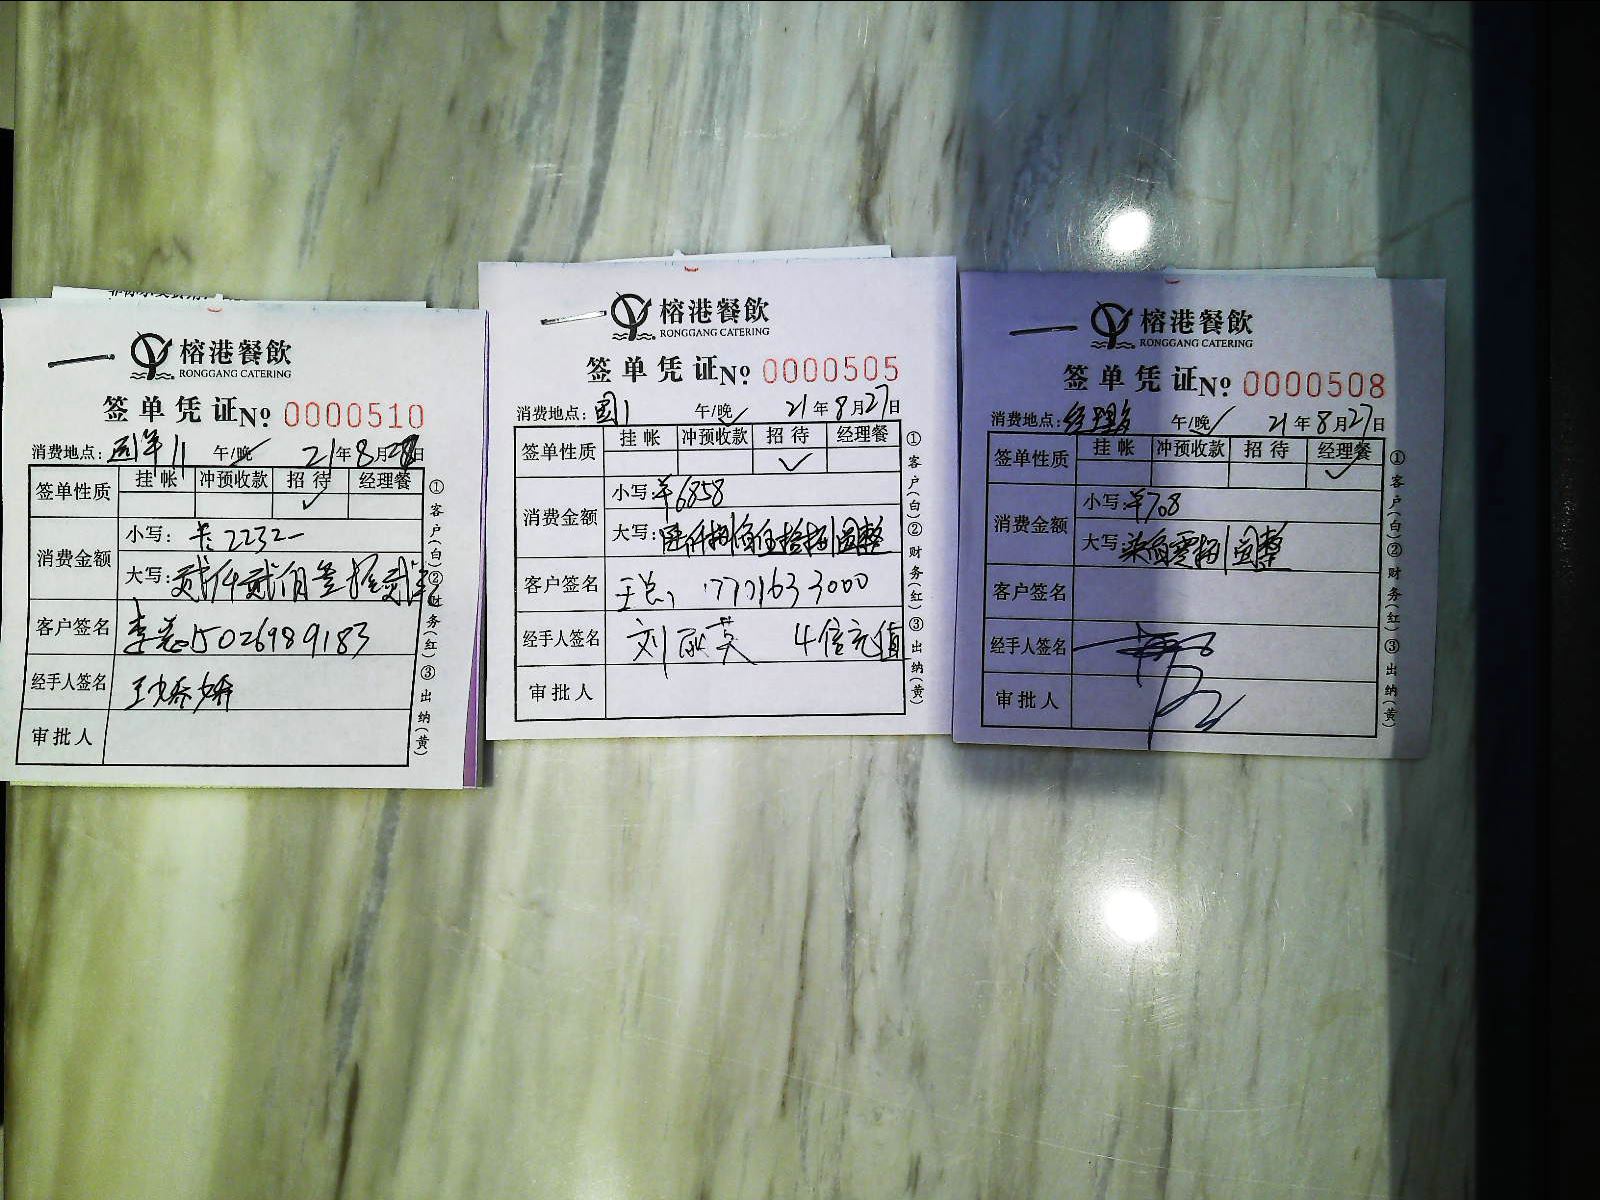 榕港餐飲
RONGGANG CATERING
签单凭证 № 0000510
消费地点: 11 午/晚 21年8月28日
签单性质 挂帐 冲预收款 招待 经理餐
✓
消费金额
小写: ¥2232-
大写: 贰仟贰佰叁拾贰
客户签名 李总15026989183
经手人签名 王
审批人
①客户(白)②财务(红)③出纳(黄)
榕港餐飲
RONGGANG CATERING
签单凭证 № 0000505
消费地点: 国1 午/晚 21年8月27日
签单性质 挂帐 冲预收款 招待 经理餐
✓
消费金额
小写: ¥6858
大写: 陆仟捌佰伍拾捌圆整
客户签名 王总 17771633000
经手人签名 刘 英 4倍充值
审批人
①客户(白)②财务(红)③出纳(黄)
榕港餐飲
RONGGANG CATERING
签单凭证 № 0000508
消费地点: 经理餐 午/晚 21年8月27日
签单性质 挂帐 冲预收款 招待 经理餐
✓
消费金额
小写: ¥708
大写: 柒佰零捌圆整
客户签名
经手人签名
审批人
①客户(白)②财务(红)③出纳(黄)